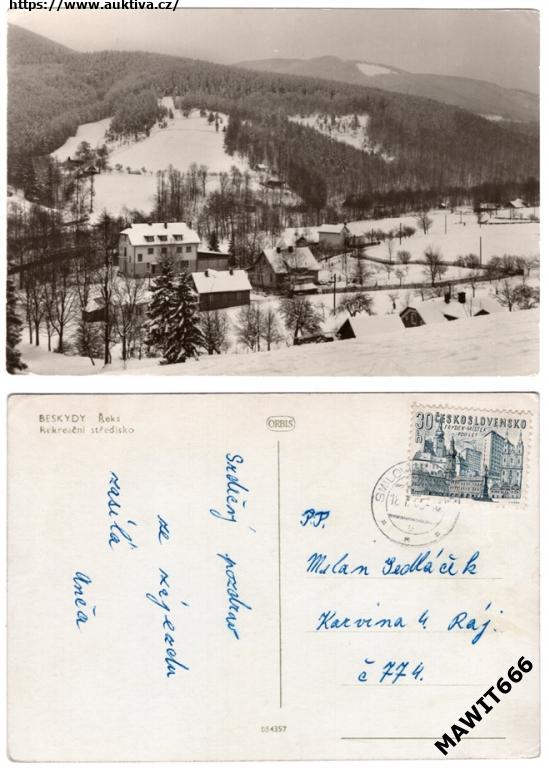 https://www.auktiva.cz/
BESKYDY Řeka
Rekreační středisko
ORBIS
Srdečný pozdrav
ze zájezdu
zasílá
Anča
30
ČESKOSLOVENSKO
FRÝDEK-MÍSTEK
P.P.
Milan Sedláček
Karvina 4. Ráj.
č 774.
054357
MAWIT666